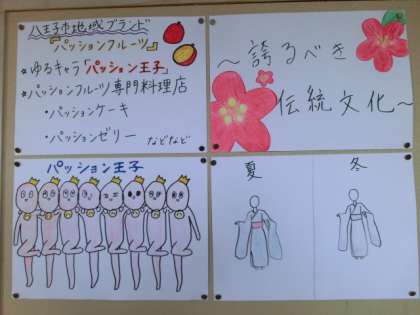 八王子市地域ブランド
『パッションフルーツ』
★ゆるキャラ「パッション王子」
★パッションフルーツ専門料理店
・パッションケーキ
・パッションゼリー などなど
～誇るべき
伝統文化～
パッション王子
夏 冬